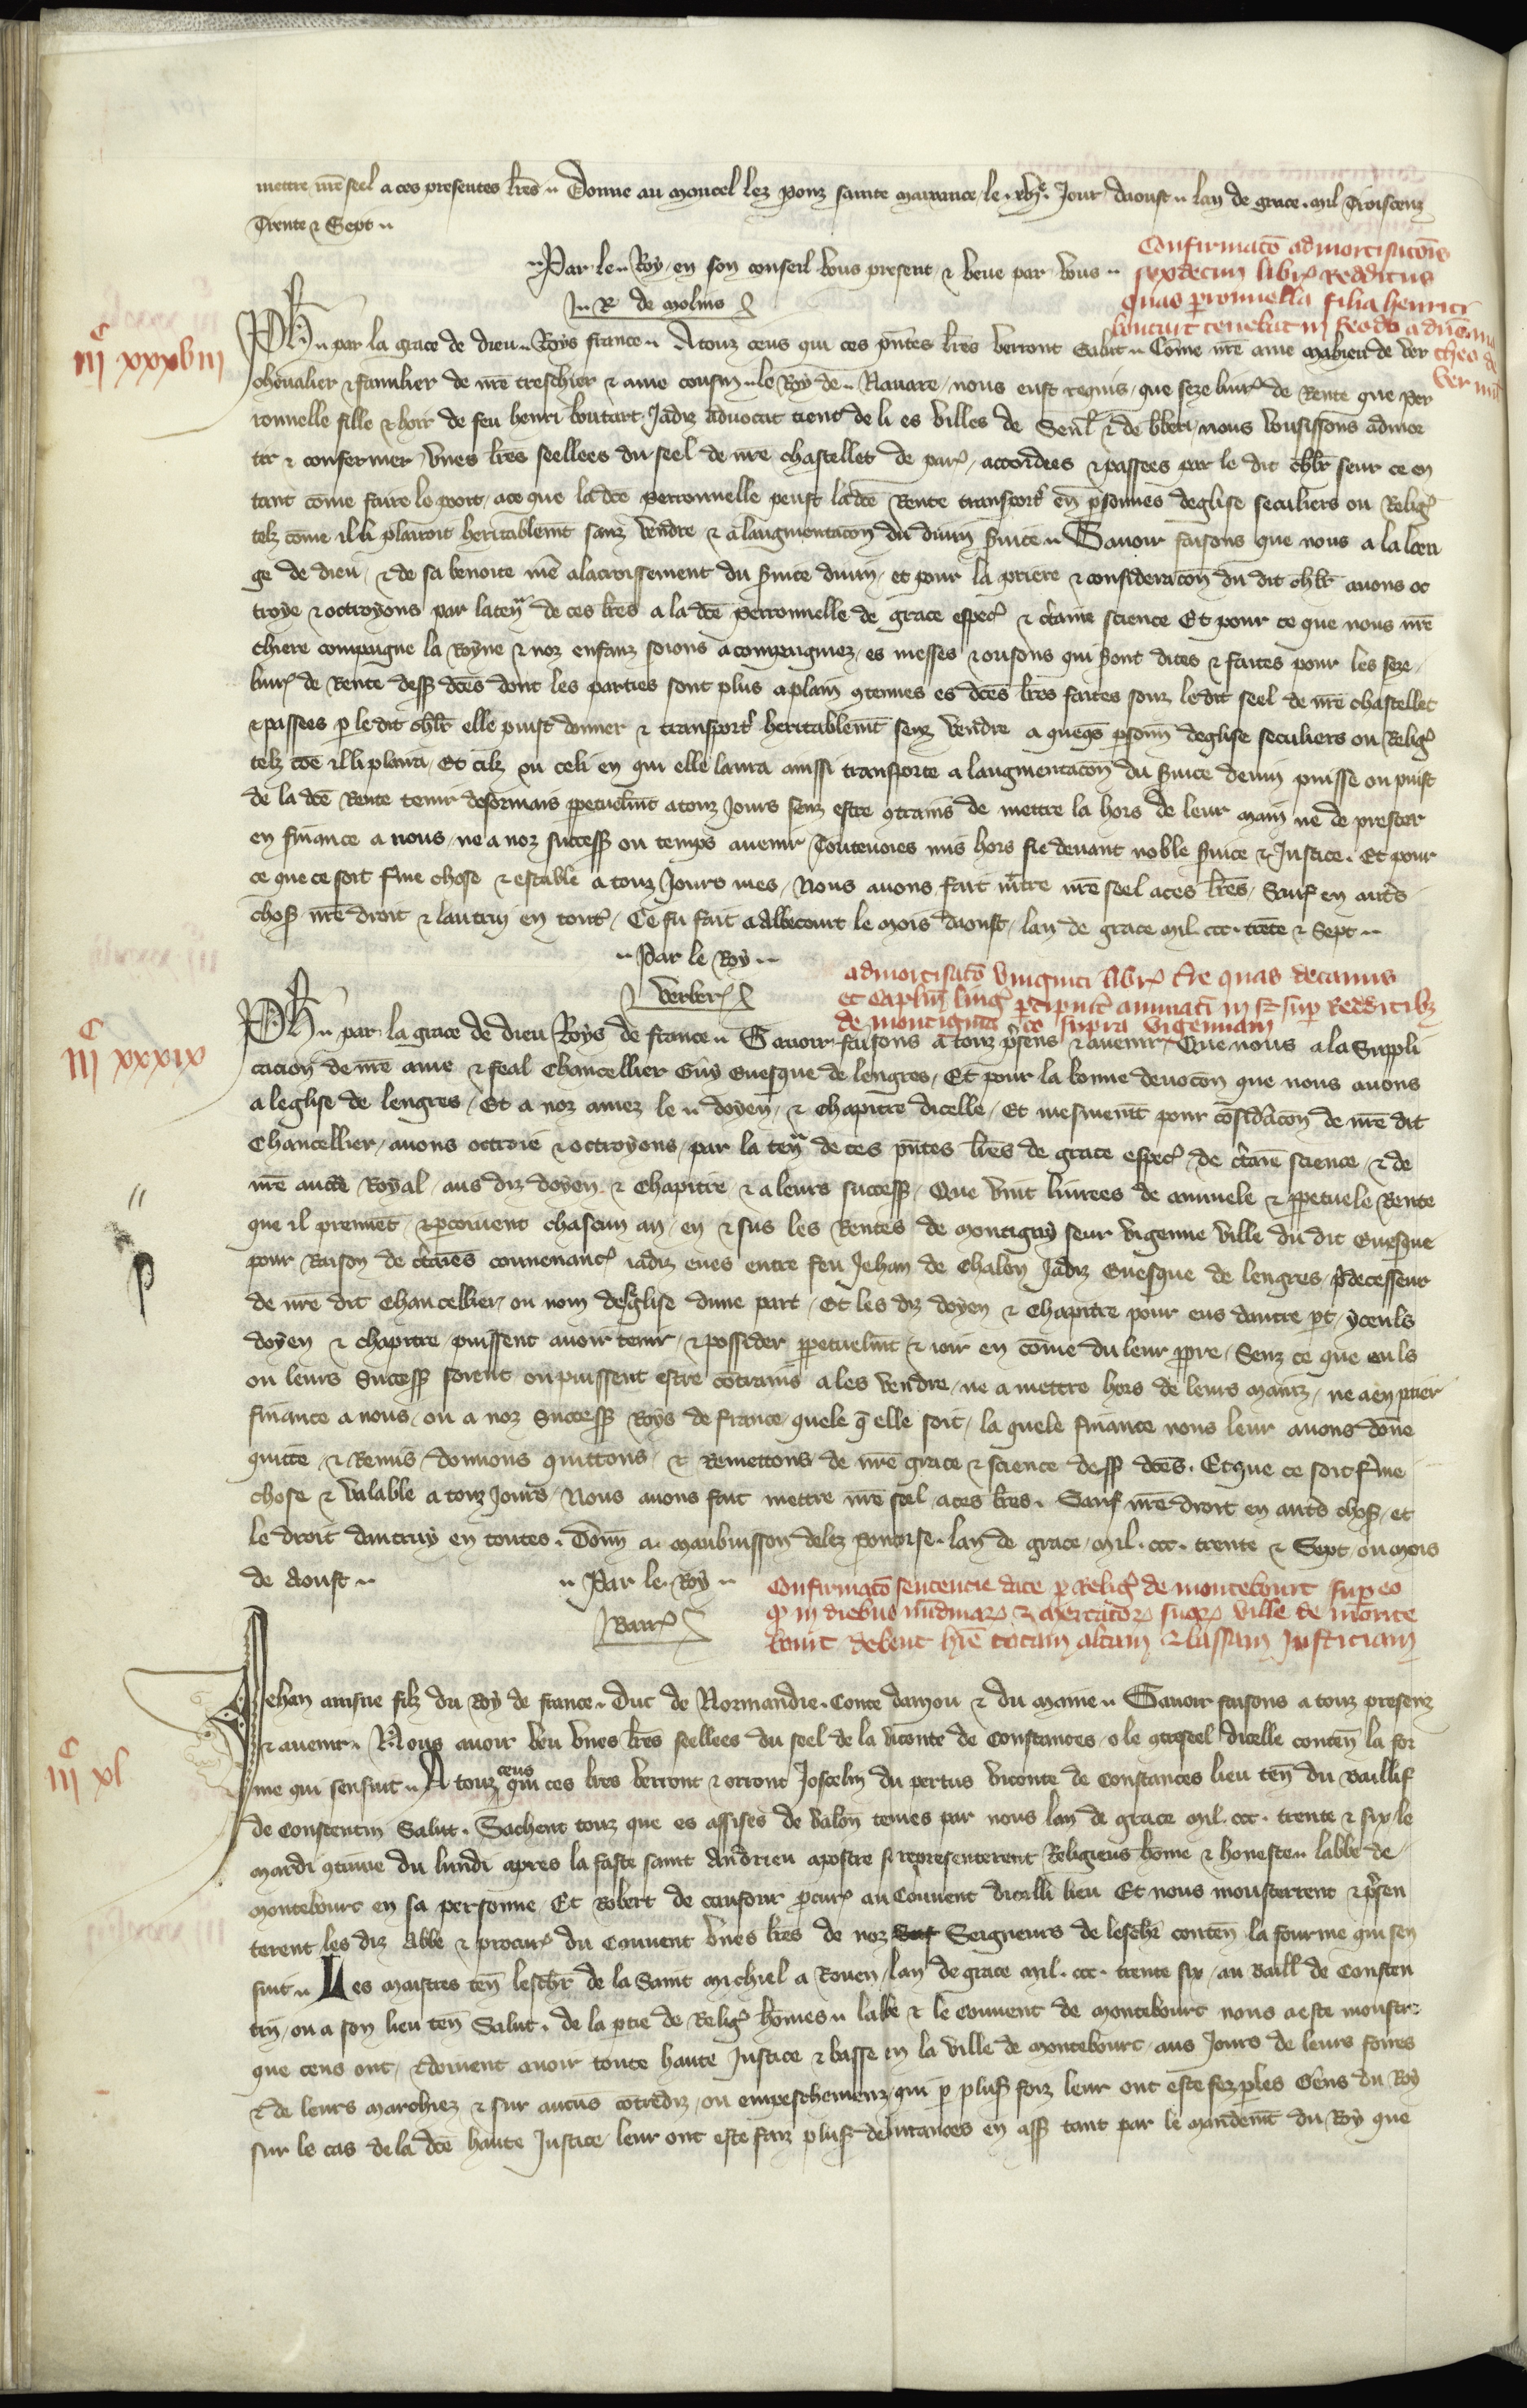 mettre nre seel a ces presentes lres Donne au moncel lez ponz sainte maixance le xve Jour daoust lan de grace mil Troiscenz
Trente & Sept
Par le Roy en son conseil vous present & veue par vous
Ja R de molins
Confirmaco admortisacois
sexdecim libr redditus
quas peronnella filia henrici
boutart tenebat in feodo a dno ma
theo de
ver mil
iiic xxxviii
Ph par la grace de dieu Roys france A touz ceus qui ces pntes lres verront Salut Come nre ame mahieu de ver
chevalier & familier de nre treschier & ame cousin le Roy de Navare nous eust requis que seze livr de Rente que per
ronnelle fille & hoir de feu henri boutart Jadiz advocat tient de li es villes de Senl & de bberi nous vousissons admor
tir & confermer unes lres seellees du seel de nre chastellet de par accordees & passees par le dit chlr seur ce en
tant come faire le pooit a ce que la dce perronnelle peust la dce Rente transport en psonnes deglise seculiers ou Relig
telz come il li plairoit heritablemt sanz vendre & a laugmentacon du divin svice Savoir faisons que nous a la loen
ge de dieu & de sa benoite me a lacroissement du svice divin et pour la priere & consideracon du dit chlr avons oc
troye & octroyons par la ten de ces lres a la dce perronnelle de grace espec & ctaine science Et pour ce que nous nre
chiere compaigne la Royne & noz enfanz soions acompaigniez es messes & orisons qui sont dites & faites pour les seze
livr de Rente dess dces dont les parties sont plus a plain gtenues es dces lres faites souz le dit seel de nre chastellet
& passees p le dit chlr elle puist donner & transport heritablemt senz vendre a quegs psonn deglise seculiers ou Relig
telz coe il li plaira Et cilz ou celi en qui elle laura aussi transporte a laugmentacon du svice devin puisse ou puist
de la dce Rente tenir desormais ppetuelmt a touz Jours senz estre gtrains de mettre la hors de leur main ne de prester
en finance a nous ne a noz success ou temps avenir Toutevoies mis hors fie devant noble svice & Justice Et pour
ce que ce soit fme chose & estable a touz Jours mes Nous avons fait mtre nre seel a ces lres Sauf en autres
chos nre droit & lautrui en tout Ce fu fait a albecourt le mois daoust lan de grace mil ccc trete & Sept
Par le Roy
verber
admortisaco viginti libr tre quas decanus
et caplm ling pcipiut annuati in & sup Redditibz
de montigniaco supra vigennam
iiic xxxix
Ph par la grace de dieu Roys de france Savoir faisons a touz psens & avenir Que nous a la Suppli
cacion de nre ame & feal Chancellier Guy evesque de lengres Et pour la bonne devocon que nous avons
a leglise de lengres Et a noz amez le doyen & chapitre dicelle Et mesmemt pour cosidacon de nre dit
Chancellier avons octroie & octroyons par la ten de ces pntes lres de grace espec de ctaine science & de
nre aucte Royal aus diz doyen & Chapitre & a leurs success Que vint livrees de annuele & ppetuele Rente
que il prennet & pcoivent chascun an en & sus les Rentes de montigny seur vigenne ville du dit evesque
pour Raison de ctaines convenanc iadiz eues entre feu Jehan de chalon Jadiz evesque de lengres pdecesseur
de nre dit Chancellier ou nom de leglise dune part Et les diz doyen & Chapitre pour eus dautre pt yceuls
doyen & chapitre puissent avoir tenir & possider ppetuelmt & ioir en come du leur ppre Senz ce que euls
ou leurs Success soient ou puissent estre cotrains a les vendre ne a mettre hors de leurs mainz ne a en paier
finance a nous ou a noz Success Roys de france quele q elle soit la quele finance nous leur avons done
quitte & Remis donnons quittons & Remettons de nre grace & science dess dces Et que ce soit fme
chose & valable a touz Jours Nous avons fait mettre nre seel a ces lres Sauf nre droit en autres chos et
le droit dautruy en toutes Donn a maubuisson delez pontoise lan de grace mil ccc trente & Sept ou mois
de Aoust
Par le Roy
Barr
Confirmaco sentencie date p Relig de montebourt sup eo
q in diebus nudinar & mercator suor ville de monte
bourt debent hre totam altam & bassam Justiciam
iiic xl
Jehan ainsne filz du Roy de france Duc de Normandie Conte danjou & du maine Savoir faisons a touz presenz
& avenir Nous avoir veu unes lres seellees du seel de la viconte de Constances o le gtreseel dicelle conten la for
me qui sensuit A touz ceus qui ces lres verront & orront Joscelin du pertus viconte de Constances lieu ten du Baillif
de Constentin Salut Sachent touz que es assises de valon tenues par nous lan de grace mil ccc trente & six le
mardi gtinue du lundi apres la faste saint Andrieu apostre se representerent Religieus home & honeste labbe de
montebourc en sa personne Et Robert de pcur au Couvent dicelli lieu Et nous monstrerent & psen
terent les diz Abbe & procur du Couvent unes lres de noz Seigneurs de leschr conten la fourme qui sen
suit Les maistres ten leschr de la Saint michiel a Rouen lan de grace mil ccc trente six au Baill de Consten
tin ou a son lieu ten Salut de la ptie de Relig homes labbe & le Couvent de montebourc nous a este monstre
que ceus ont & doivent avoir toute haute Justice & basse en la ville de montebourc aus Jours de leurs foires
& de leurs marchiez & sur aucus cotrediz ou empeschemenz qui p plus foiz leur ont este fez p les Gens du Roy
sur le cas de la dce haute Justice leur ont este faiz plus delivrances en ass tant par le mandemt du Roy que